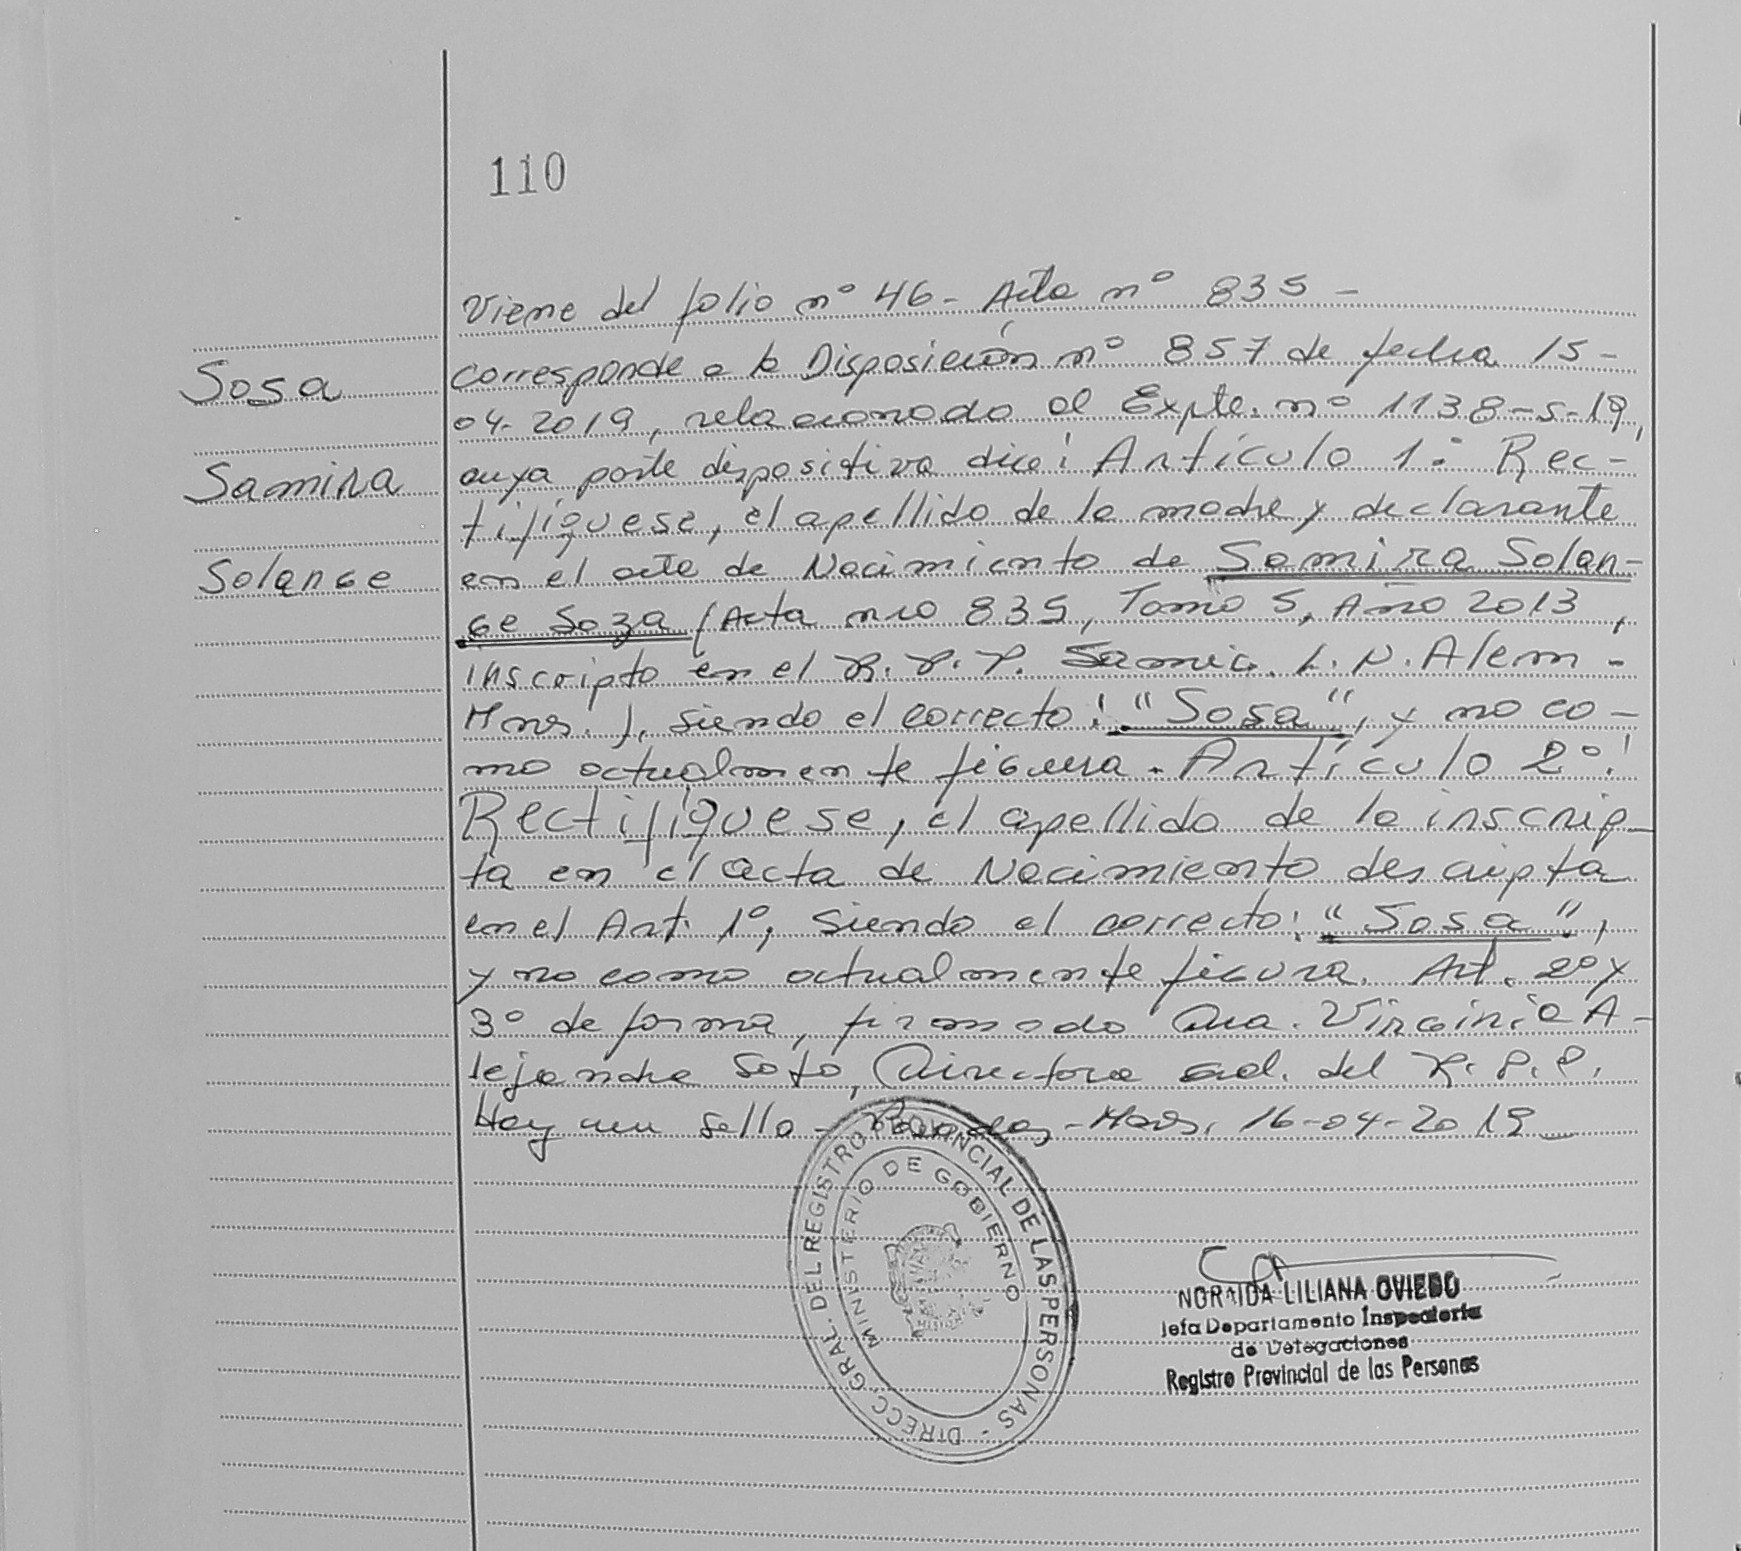 110
Viene del folio nº 46- Acta nº 835 -
Sosa
corresponde a la Disposición nº 857 de fecha 15-
04-2019, relacionado al Expte. nº 1138-S-19,
Samira
cuya parte dispositiva dice: Artículo 1: Rec-
tifíquese, el apellido de la madre y declarante
Solange
en el acta de Nacimiento de Samira Solan-
ge Soza (Acta nro 835, Tomo 5, Año 2013,
inscripto en el R.P.P. L.N. Alem -
Mnes.), siendo el correcto: "Sosa", y no co-
mo actualmente figura. Artículo 2º:
Rectifíquese, el apellido de la inscrip-
ta en el acta de Nacimiento descripta
en el Art. 1º, siendo el correcto: "Sosa",
y no como actualmente figura. Art. 2º y
3º de forma, firmado Dra. Virginia A-
lejandra Soto, Directora Gral. del R.P.P.
Hay un sello - Posadas - Mnes. 16-04-2019
DIRECC. GRAL. DEL REGISTRO PROVINCIAL DE LAS PERSONAS -
MINISTERIO DE GOBIERNO
NORAIDA LILIANA OVIEDO
Jefa Departamento Inspectoría
de Delegaciones
Registro Provincial de las Personas